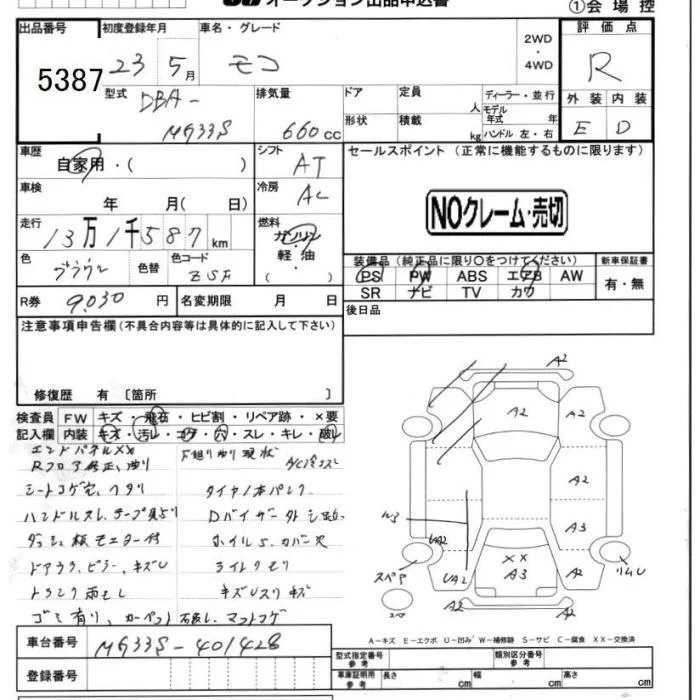 オークション出品申込書
①会場控
出品番号 初度登録年月 車名・グレード 2WD・4WD 評価点
5387 23 5月 モコ R
型式 DBA- MG33S 排気量 660cc ドア 定員 人 ディーラー・並行
形状 積載 kg モデル年式 年 ハンドル 左・右
外装 内装
E D
車歴 自家用・( ) シフト AT セールスポイント (正常に機能するものに限ります)
車検 年 月( 日) 冷房 AC
NOクレーム・売切
走行 13万1千587km 燃料 ガソリン・軽油・( )
色 ブラウン 色替 色コード ZSF
装備品(純正品に限り○をつけてください) 新車保証書
PS PW ABS エアB AW 有・無
SR ナビ TV カワ
R券 9,030円 名変期限 月 日 後日品
注意事項申告欄(不具合内容等は具体的に記入して下さい)
修復歴 有 〔箇所 〕
検査員 FW キズ・飛石・ヒビ割・リペア跡・×要
記入欄 内装 キズ・汚レ・コゲ・穴・スレ・キレ・破レ
エンドパネルXX 下廻り曲り 現状
Rフロア修正、曲り
シートコゲ穴、ヘタリ タイヤ1本パンク
ハンドルスレ
ダッシュ板モニター付
ドアウラ、ピラー、キズU ライトクモリ
トランク雨モレ
ゴミ有り、カーペット破レ、マットコゲ
A2
A2 A2
A2
W3 A3
UA2 UA2 XX A3 A2
A2 A2
スペア リムU
スペア
A-キズ E-エクボ U-凹み W-補修跡 S-サビ C-腐食 XX-交換済
車台番号 MG33S-401428
型式指定番号 参考 類別区分番号 参考
登録番号 車庫証明用 参考 長さ cm 幅 cm 高さ cm